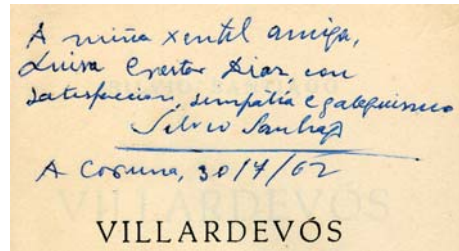 A miña xentil amiga,
Luisa Cuesta Diaz, con
satisfaccion, simpatía e galeguismo
Silvio Santiago
A Coruna, 30/7/62
VILLARDEVÓS